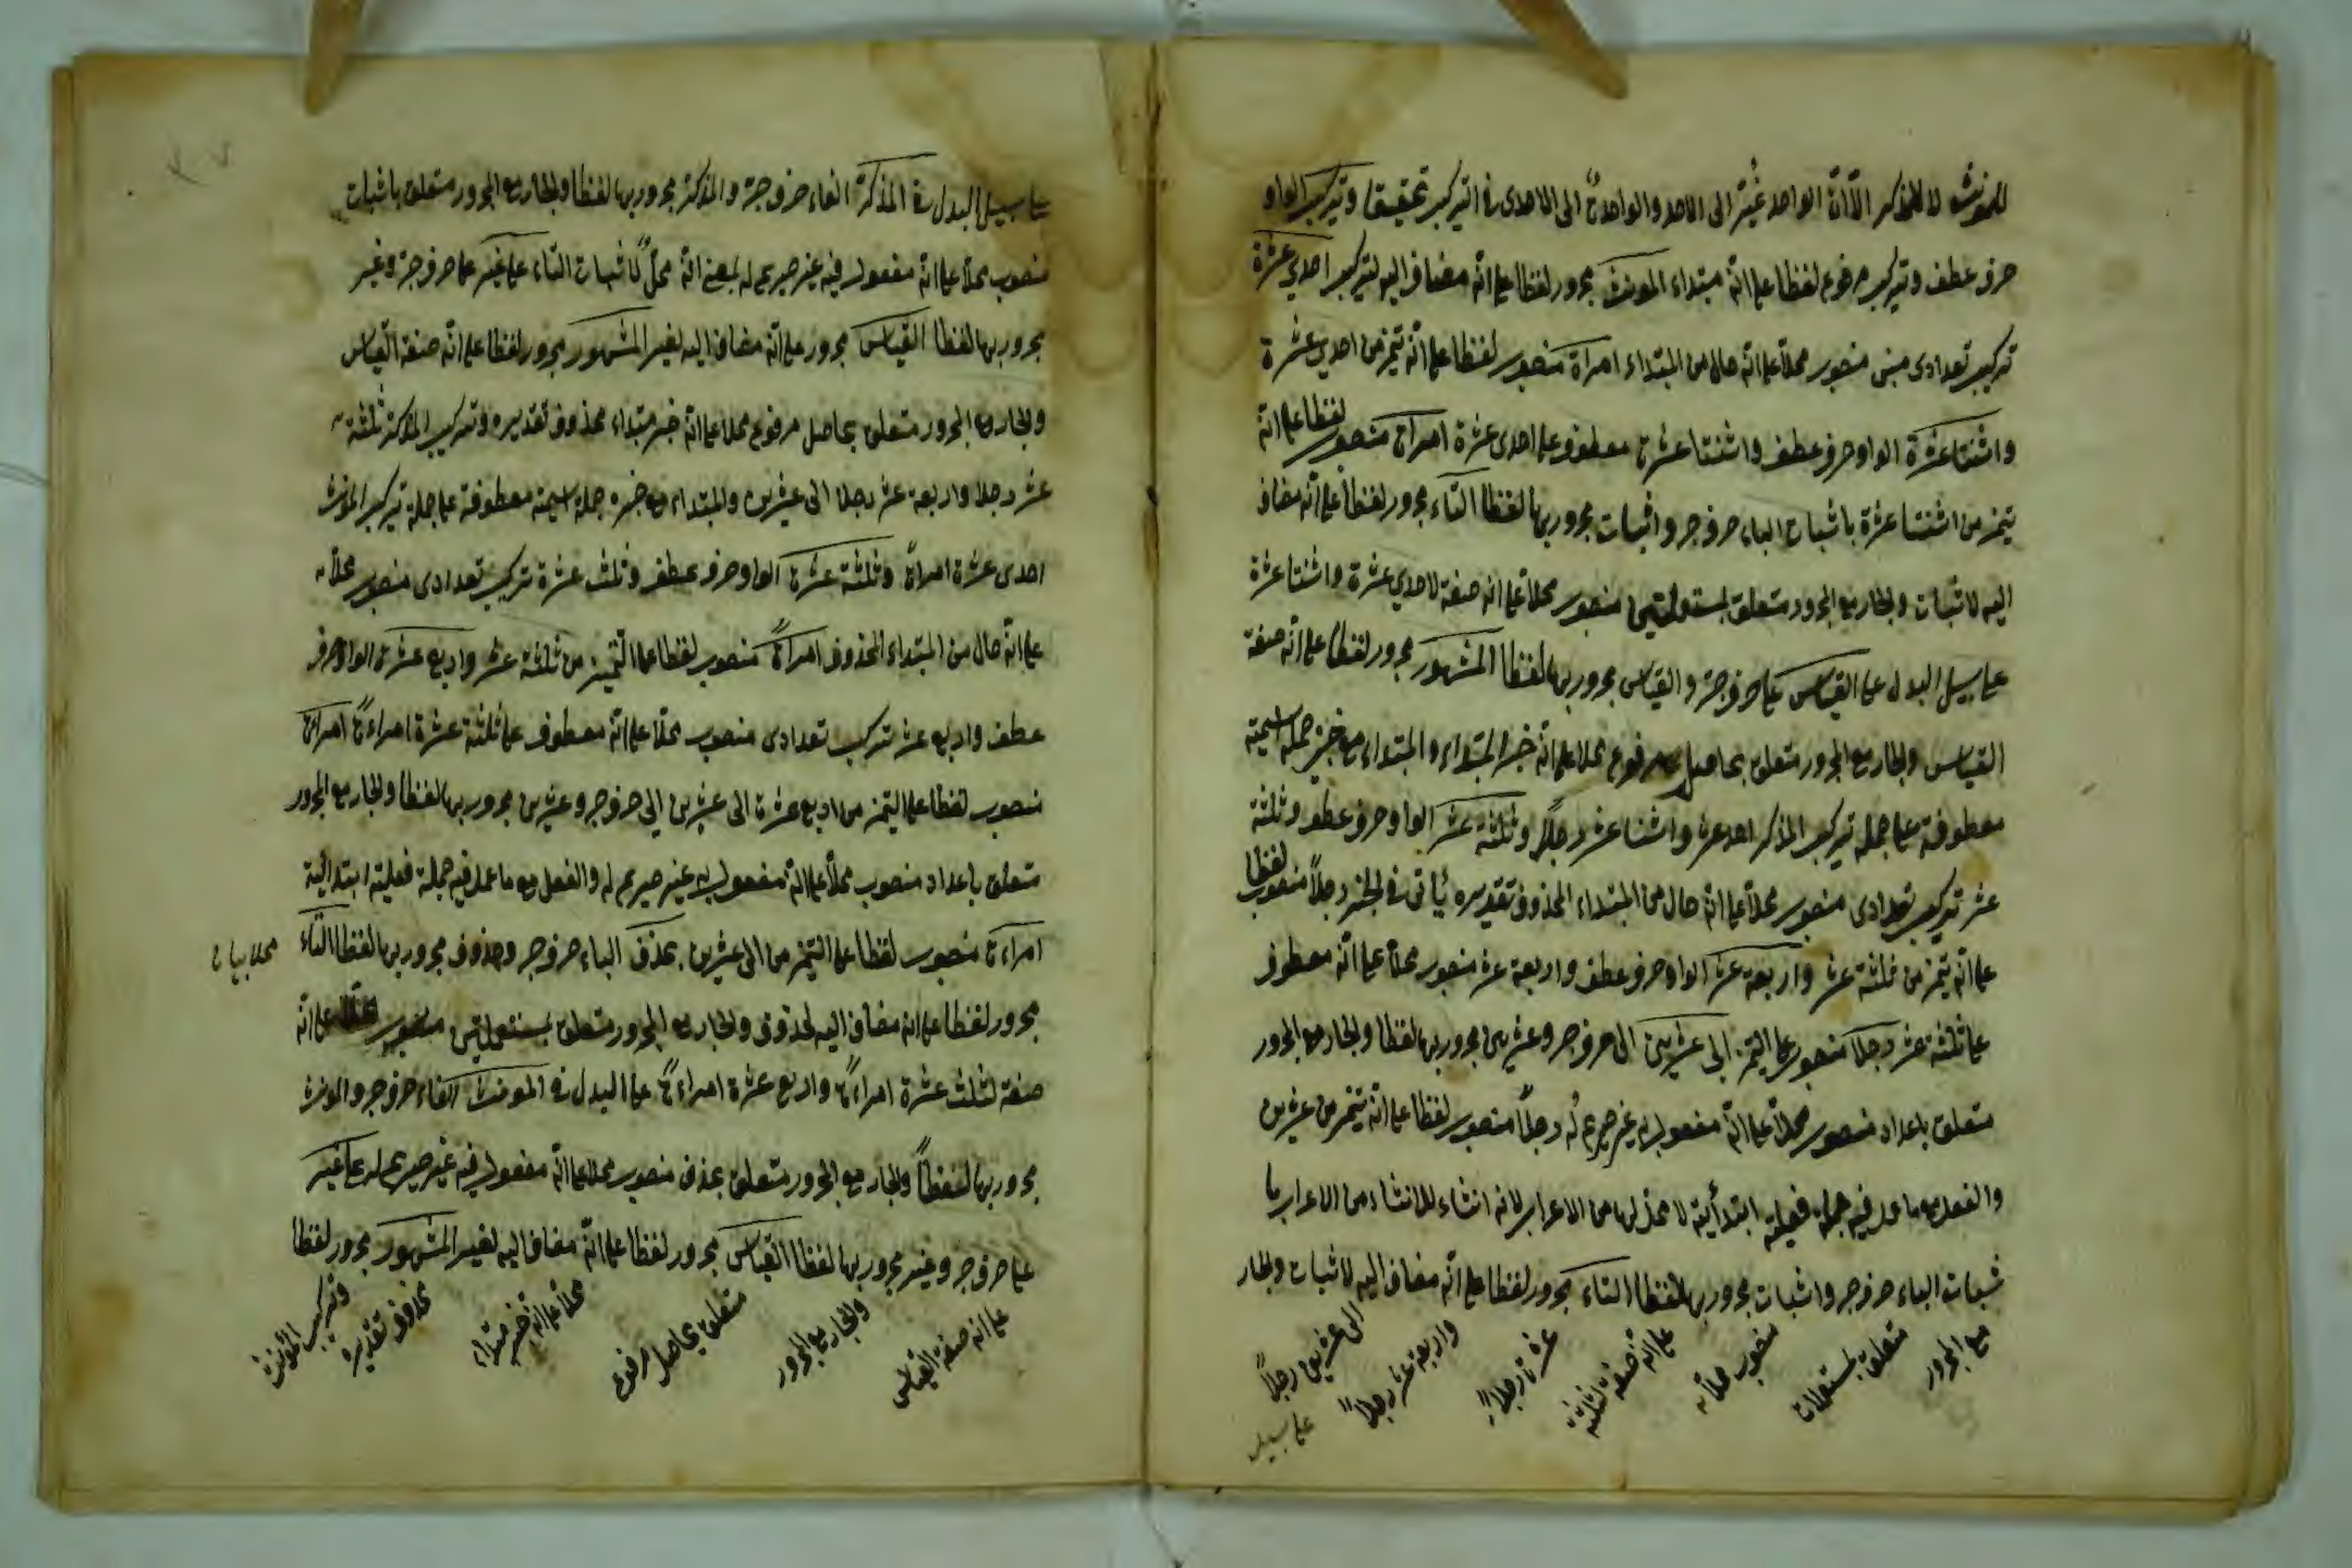 للمونث لا للمذكر الا ان الواحد غُيّر الى الاحد والواحدة الى الاحدى في التركيب تحقيقا وتركيب الواو
حرف عطف وتركيب مرفوع لفظا على انه مبتداء المونث مجرور لفظا على انه مضاف اليه لتركيب احدى عشرة
تركيب تعدادى مبنى منصوب محلا على انه حال من المبتداء امراة منصوب لفظا على انه تميز من احدى عشرة
واثنتا عشرة الواو حرف عطف واثنتا عشرة معطوف على احدى عشرة امراة منصوب لفظا على انه
تميز من اثنتا عشرة باثبات الباء حرف جر واثبات مجرور بها لفظا التاء مجرور لفظا على انه مضاف
اليه لاثبات والجار مع المجرور متعلق بمستعملتين منصوب محلا على انه صفة لاحدى عشرة واثنتا عشرة
على سبيل البدل على القياس على حرف جر والقياس مجرور بها لفظا المشهور مجرور لفظا على انه صفة
القياس والجار مع المجرور متعلق بحاصل مرفوع محلا على انه خبر المبتداء والمبتداء مع خبره جملة اسمية
معطوفة على جملة تركيب المذكر احد عشر واثنا عشر رجلا وثلثة عشر الواو حرف عطف وثلثة
عشر تركيب تعدادى منصوب محلا على انه حال من المبتداء المحذوف تقديره يأتى في الخبر رجلاً منصوب لفظا
على انه تميز من ثلثة عشر واربعة عشر الواو حرف عطف واربعة عشر منصوب محلا على انه معطوف
على ثلثة عشر رجلا منصوب على التميز الى عشرين الى حرف جر وعشرين مجرور بها لفظا والجار مع المجرور
متعلق باعداد منصوب محلا على انه مفعول به غير صريح له رجلاً منصوب لفظا على انه تميز من عشرين
والفعل مع ما عمل فيه جملة فعلية ابتدأئية لا محل لها من الاعراب لانه انشاء للانشاء من الاعراب با
ثبات الباء حرف جر واثبات مجرور بها لفظا التاء مجرور لفظا على انه مضاف اليه لاثبات والجار
مع المجرور
متعلق بمستعملات
منصوب محلا
على انه صفة لثلثة
عشرة رجلاً
واربعة عشر رجلاً
الى عشرين رجلاً
على سبيل
على سبيل البدل في المذكر الفاء حرف جر والمذكر مجرور بها لفظا والجار مع المجرور متعلق باثبات
منصوب محلا على انه مفعول فيه غير صريح له بمعنى انه محل لاثبات التاء على غير على حرف جر وغير
مجرور بها لفظا القياس مجرور على انه مضاف اليه لغير المشهور مجرور لفظا على انه صفة القياس
والجار مع المجرور متعلق بحاصل مرفوع محلا على انه خبر مبتداء محذوف تقديره وتركيب المذكر ثلثة
عشر رجلا واربعة عشر رجلا الى عشرين والمبتداء مع خبره جملة اسمية معطوفة على جملة تركيب المونث
احدى عشرة امراة وثلثة عشرة الواو حرف عطف وثلث عشرة تركيب تعدادى منصوب محلا
على انه حال من المبتداء المحذوف امراة منصوب لفظا على التميز من ثلثة عشر واربع عشرة الواو حرف
عطف واربع عشر تركيب تعدادى منصوب محلا على انه معطوف على ثلثة عشرة امراءة امراة
منصوب لفظا على التميز من اربع عشرة الى عشرين الى حرف جر وعشرين مجرور بها لفظا والجار مع المجرور
متعلق باعداد منصوب محلا على انه مفعول به غير صريح له والفعل مع ما عمل فيه جملة فعلية ابتدائية
امراءة منصوب لفظا على التميز من الى عشرين بحذف الباء حرف جر وحذوف مجرور بها لفظا التاء
مجرور لفظا على انه مضاف اليه لحذوف والجار مع المجرور متعلق بمستعملتين منصوب على انه
صفة لثلث عشرة امراءة واربع عشرة امراءة على البدل في المونث الفاء حرف جر والمونث
مجرور بها لفظاً والجار مع المجرور متعلق بحذف منصوب محلا على انه مفعول فيه غير صريح له على غير
على حرف جر وغير مجرور بها لفظا القياس مجرور لفظا على انه مضاف اليه لغير المشهور مجرور لفظا
على انه صفة القياس
والجار مع المجرور
متعلق بحاصل مرفوع
محلا على انه خبر مبتداء
محذوف تقديره
وتركيب المونث